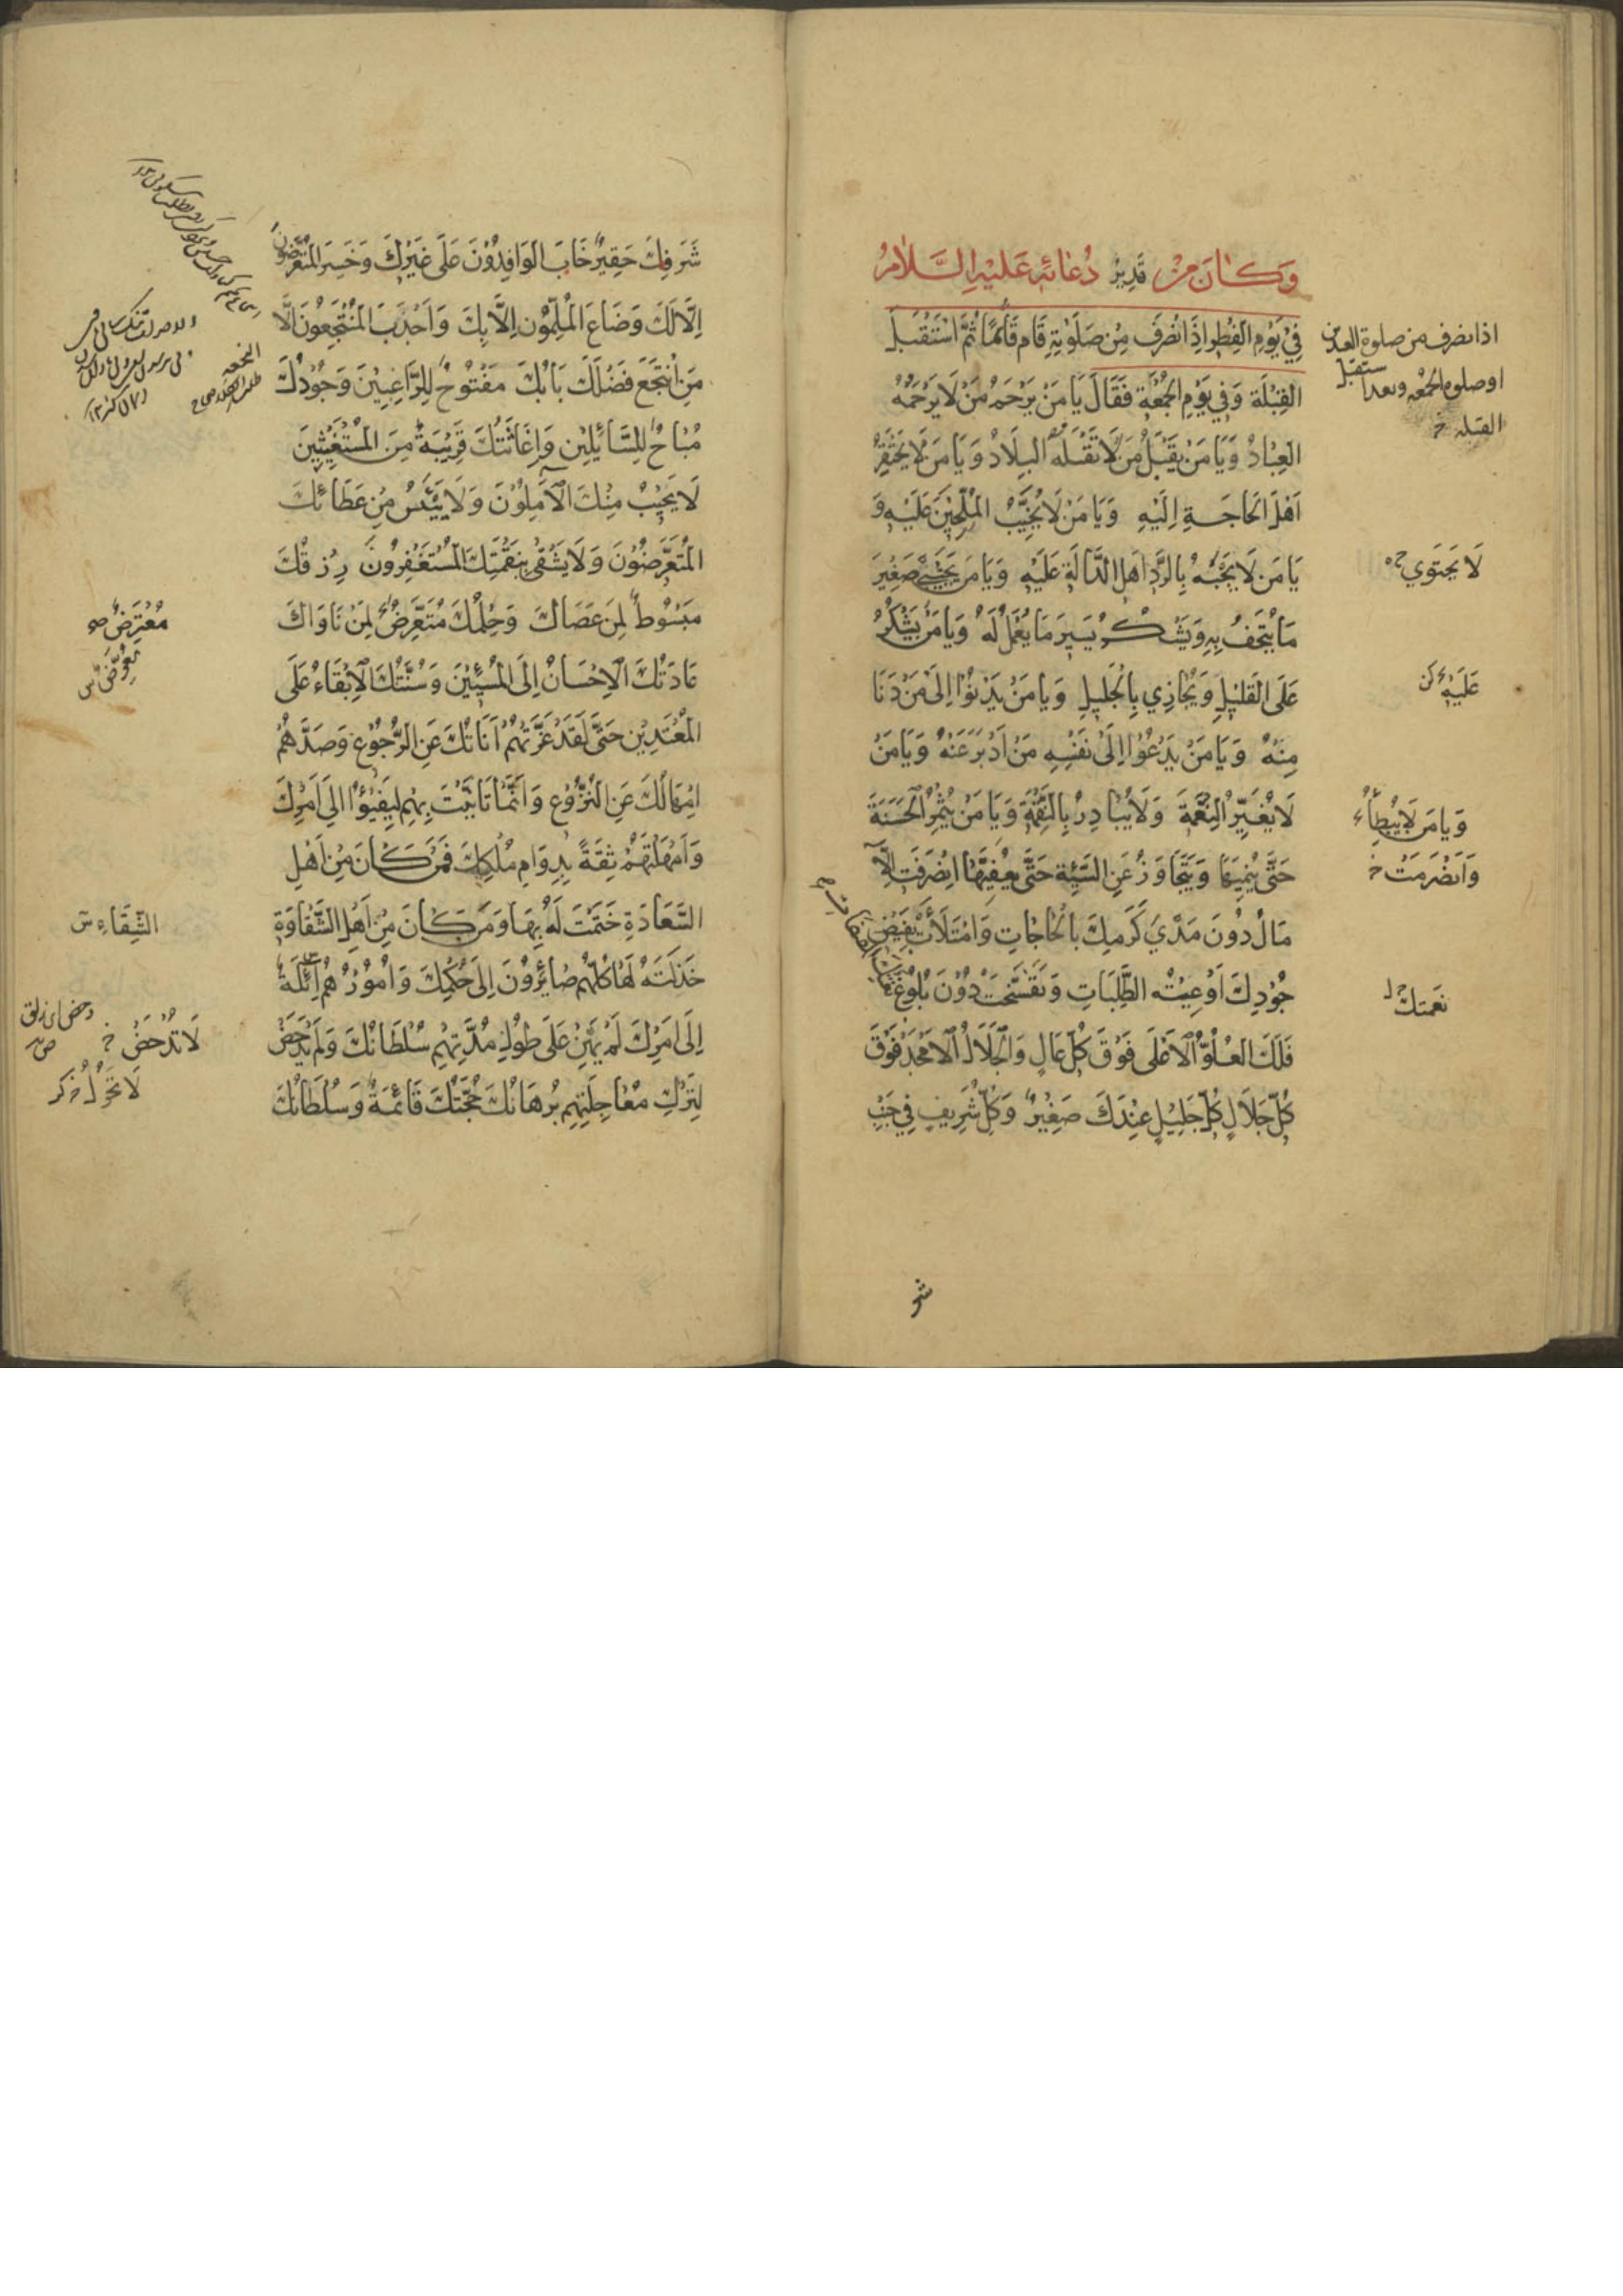 وَكَانَ مِنْ دُعَائِهِ عَلَيْهِ السَّلَامُ
فِي يَوْمِ الْفِطْرِ اِذَا انْصَرَفَ مِنْ صَلَوتِهِ قَامَ قَائِمًا ثُمَّ اسْتَقْبَلَ
الْقِبْلَةَ وَفِي يَوْمِ الْجُمُعَةِ فَقَالَ يَا مَنْ يَرْحَمُ مَنْ لَا يَرْحَمُهُ
الْعِبَادُ وَيَا مَنْ يَقْبَلُ مَنْ لَا تَقْبَلُهُ الْبِلَادُ وَيَا مَنْ لَا يَحْتَقِرُ
اَهْلَ الْحَاجَةِ اِلَيْهِ وَيَا مَنْ لَا يُخَيِّبُ الْمُلِحِّينَ عَلَيْهِ وَ
يَا مَنْ لَا يَجْبَهُ بِالرَّدِّ اَهْلَ الدَّالَّةِ عَلَيْهِ وَيَا مَنْ يَجْتَبِي صَغِيرَ
مَا يُتْحَفُ بِهِ وَيَشْكُرُ يَسِيرَ مَا يُعْمَلُ لَهُ وَيَا مَنْ يَشْكُرُ
عَلَى الْقَلِيلِ وَيُجَازِي بِالْجَلِيلِ وَيَا مَنْ يَدْنُوا اِلَى مَنْ دَنَا
مِنْهُ وَيَا مَنْ يَدْعُوا اِلَى نَفْسِهِ مَنْ اَدْبَرَ عَنْهُ وَيَا مَنْ
لَا يُغَيِّرُ النِّعْمَةَ وَلَا يُبَادِرُ بِالنَّقِمَةِ وَيَا مَنْ يُثْمِرُ الْحَسَنَةَ
حَتَّى يُنْمِيَهَا وَيَتَجَاوَزُ عَنِ السَّيِّئَةِ حَتَّى يُعَفِّيَهَا انْصَرَفَتِ الْآ
مَالُ دُونَ مَدَى كَرَمِكَ بِالْحَاجَاتِ وَامْتَلَأَتْ بِفَيْضِ
جُودِكَ اَوْعِيَةُ الطَّلِبَاتِ وَتَفَسَّخَتْ دُونَ بُلُوغِ
فَلَكَ الْعُلُوُّ الْاَعْلَى فَوْقَ كُلِّ عَالٍ وَالْجَلَالُ الْاَمْجَدُ فَوْقَ
كُلِّ جَلَالٍ كُلُّ جَلِيلٍ عِنْدَكَ صَغِيرٌ وَكُلُّ شَرِيفٍ فِي جَنْبِ
اذا انصرف من صلوة العيدين
او صلوة الجمعة
يستقبل
القبلة خ
لَا يَجْتَوِي
عَلَيْهِ
وَيَا مَنْ لَا يُبْطِأُ
وَانْصَرَمَتْ خ
نَعْتِكَ
شر
شَرَفِكَ حَقِيرٌ خَابَ الْوَافِدُونَ عَلَى غَيْرِكَ وَخَسِرَ الْمُتَعَرِّضُونَ
اِلَّا لَكَ وَضَاعَ الْمُلِمُّونَ اِلَّا بِكَ وَاَجْدَبَ الْمُنْتَجِعُونَ اِلَّا
مَنِ انْتَجَعَ فَضْلَكَ بَابُكَ مَفْتُوحٌ لِلرَّاغِبِينَ وَجُودُكَ
مُبَاحٌ لِلسَّائِلِينَ وَاِغَاثَتُكَ قَرِيبَةٌ مِنَ الْمُسْتَغِيثِينَ
لَا يَخِيبُ مِنْكَ الْآمِلُونَ وَلَا يَيْئَسُ مِنْ عَطَائِكَ
الْمُتَعَرِّضُونَ وَلَا يَشْقَى بِنَقِمَتِكَ الْمُسْتَغْفِرُونَ رِزْقُكَ
مَبْسُوطٌ لِمَنْ عَصَاكَ وَحِلْمُكَ مُتَعَرِّضٌ لِمَنْ نَاوَاكَ
عَادَتُكَ الْاِحْسَانُ اِلَى الْمُسِيئِينَ وَسُنَّتُكَ الْاِبْقَاءُ عَلَى
الْمُعْتَدِينَ حَتَّى لَقَدْ غَرَّتْهُمْ اَنَاتُكَ عَنِ الرُّجُوعِ وَصَدَّهُمْ
اِمْهَالُكَ عَنِ النُّزُوعِ وَاِنَّمَا تَاَنَّيْتَ بِهِمْ لِيَفِيئُوا اِلَى اَمْرِكَ
وَاَمْهَلْتَهُمْ ثِقَةً بِدَوَامِ مُلْكِكَ فَمَنْ كَانَ مِنْ اَهْلِ
السَّعَادَةِ خَتَمْتَ لَهُ بِهَا وَمَنْ كَانَ مِنْ اَهْلِ الشَّقَاوَةِ
خَذَلْتَهُ لَهَا كُلُّهُمْ صَائِرُونَ اِلَى حُكْمِكَ وَاُمُورُهُمْ آئِلَةٌ
اِلَى اَمْرِكَ لَمْ يَهِنْ عَلَى طُولِ مُدَّتِهِمْ سُلْطَانُكَ وَلَمْ يَدْحَضْ
لِتَرْكِ مُعَاجَلَتِهِمْ بُرْهَانُكَ حُجَّتُكَ قَائِمَةٌ وَسُلْطَانُكَ
مُعْتَرِضٌ
الشَّقَاءِ
لَا تُدْحَضُ خ
لَا تَحُولُ